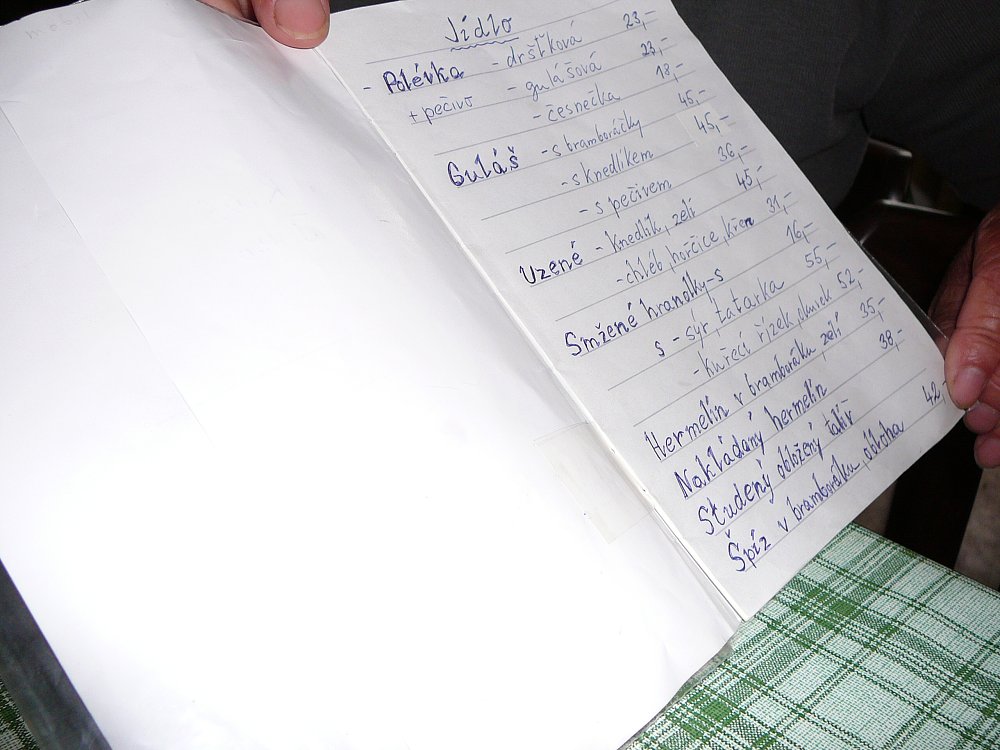 Jídlo
- Polévka - dršťková 23,-
+ pečivo - gulášová 23,-
- česnečka 18,-
Guláš - s bramboráčky 45,-
- s knedlíkem 45,-
- s pečivem 36,-
Uzené - knedlík, zelí 45,-
- chléb, hořčice, křen 31,-
Smžené hranolky-s 16,-
s - sýr, tatarka 55,-
- kuřecí řízek, okurek 52,-
Hermelín v bramboráku, zelí 35,-
Nakládaný hermelín 38,-
Studený obložený talíř
Špíz v bramboráku, obloha 42,-